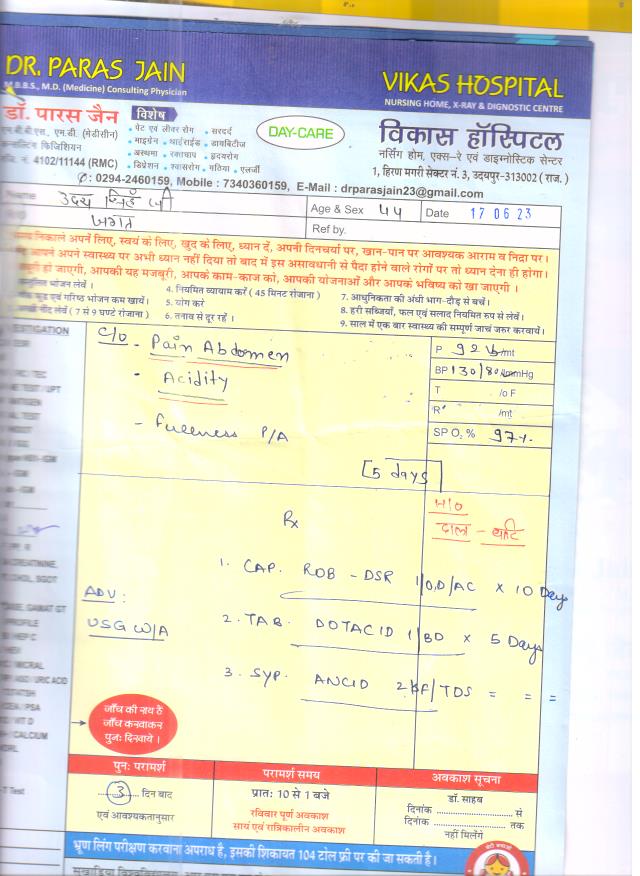 DR. PARAS JAIN
M.B.B.S., M.D. (Medicine) Consulting Physician
VIKAS HOSPITAL
NURSING HOME, X-RAY & DIGNOSTIC CENTRE
डॉ. पारस जैन
एम.बी.बी.एस., एम.डी. (मेडीसीन)
कन्सल्टिंग फिजिशियन
रजि. नं. 4102/11144 (RMC)
विशेष
• पेट एवं लीवर रोग • सरदर्द
• माइग्रेन • थाईराईड • डायबिटीज
• अस्थमा • रक्तचाप • हृदयरोग
• डिप्रेशन • श्वासरोग • गठिया • एलर्जी
DAY-CARE
विकास हॉस्पिटल
नर्सिंग होम, एक्स-रे एवं डाइग्नोस्टिक सेन्टर
1, हिरण मगरी सेक्टर नं. 3, उदयपुर-313002 (राज.)
✆: 0294-2460159, Mobile : 7340360159, E-Mail : drparasjain23@gmail.com
Name उदय सिंह जी
Age & Sex 55 Date 17 06 23
जगत
Ref by.
समय निकाले अपनें लिए, स्वयं के लिए, खुद के लिए, ध्यान दें, अपनी दिनचर्या पर, खान-पान पर आवश्यक आराम व निद्रा पर।
आपने अपने स्वास्थ्य पर अभी ध्यान नहीं दिया तो बाद में इस असावधानी से पैदा होने वाले रोगों पर तो ध्यान देना ही होगा।
हो जाएगी, आपकी यह मजबूरी, आपके काम-काज को, आपकी योजनाओं और आपके भविष्य को खा जाएगी ।
भोजन लेवें । 4. नियमित व्यायाम करें ( 45 मिनट रोजाना ) 7. आधुनिकता की अंधी भाग-दौड़ से बचें।
फूड एवं गरिष्ठ भोजन कम खायें। 5. योग करे 8. हरी सब्जियां, फल एवं सलाद नियमित रुप से लेवें।
नींद लेवें ( 7 से 9 घण्टे रोजाना ) 6. तनाव से दूर रहें । 9. साल में एक बार स्वास्थ्य की सम्पूर्ण जाचं जरुर करवायें।
C/O - Pain Abdomen
- Acidity
- Fullness P/A
[5 days]
P 92 /mt
BP 130/80 mmHg
T /o F
R /mt
SP O2 % 97%
H/O
दाल - बाटी
Rx
1. CAP. ROB - DSR 1/O.D/AC x 10 Days
ADV :
USG W/A
2. TAB. DOTACID 1/BD x 5 Days
3. SYP. ANCID 2 /TDS = = =
जाँच की राय है
जाँच करवाकर
पुनः दिखाये ।
पुनः परामर्श
3 दिन बाद
एवं आवश्यकतानुसार
परामर्श समय
प्रातः 10 से 1 बजे
रविवार पूर्ण अवकाश
सायं एवं रात्रिकालीन अवकाश
अवकाश सूचना
डॉ. साहब
दिनांक से
दिनांक तक
नहीं मिलेंगे
भ्रूण लिंग परीक्षण करवाना अपराध है, इसकी शिकायत 104 टोल फ्री पर की जा सकती है।